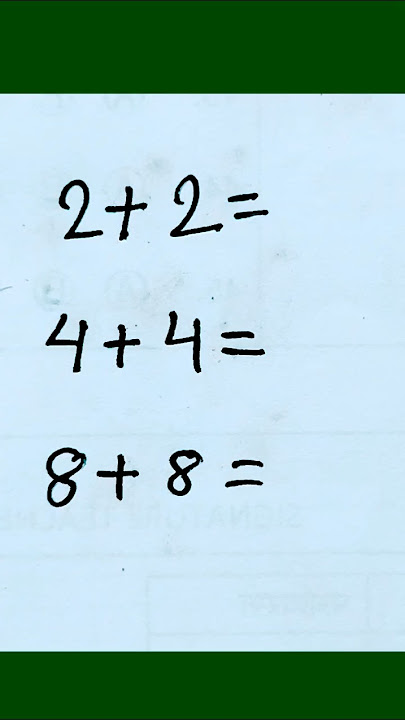 2+2=
4+4=
8+8=